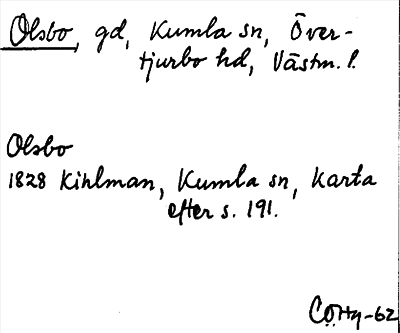 Olsbo, gd, Kumla sn, Över-
tjurbo hd, Västm. l.
Olsbo
1828 Kihlman, Kumla sn, Karta
efter s. 191.
CÖHq-62